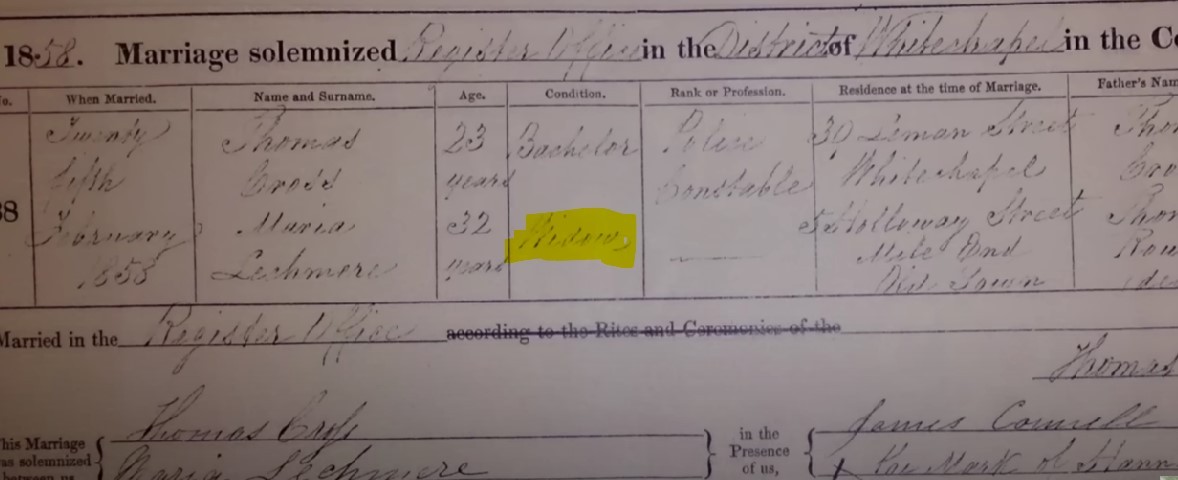 1858. Marriage solemnized Register Office in the District of Whitechapel in the Co
No. When Married. Name and Surname. Age. Condition. Rank or Profession. Residence at the time of Marriage. Father's Nam
38 Twenty fifth February 1858
Thomas Cross 23 years Bachelor Police Constable 30 Leman Street Whitechapel
Maria Lechmere 32 years Widow 5 Holloway Street Mile End Old Town
Married in the Register Office according to the Rites and Ceremonies of the
Thomas
This Marriage was solemnized between us, Thomas Cross
Maria Lechmere
in the Presence of us, James Connell
X the Mark of Hann